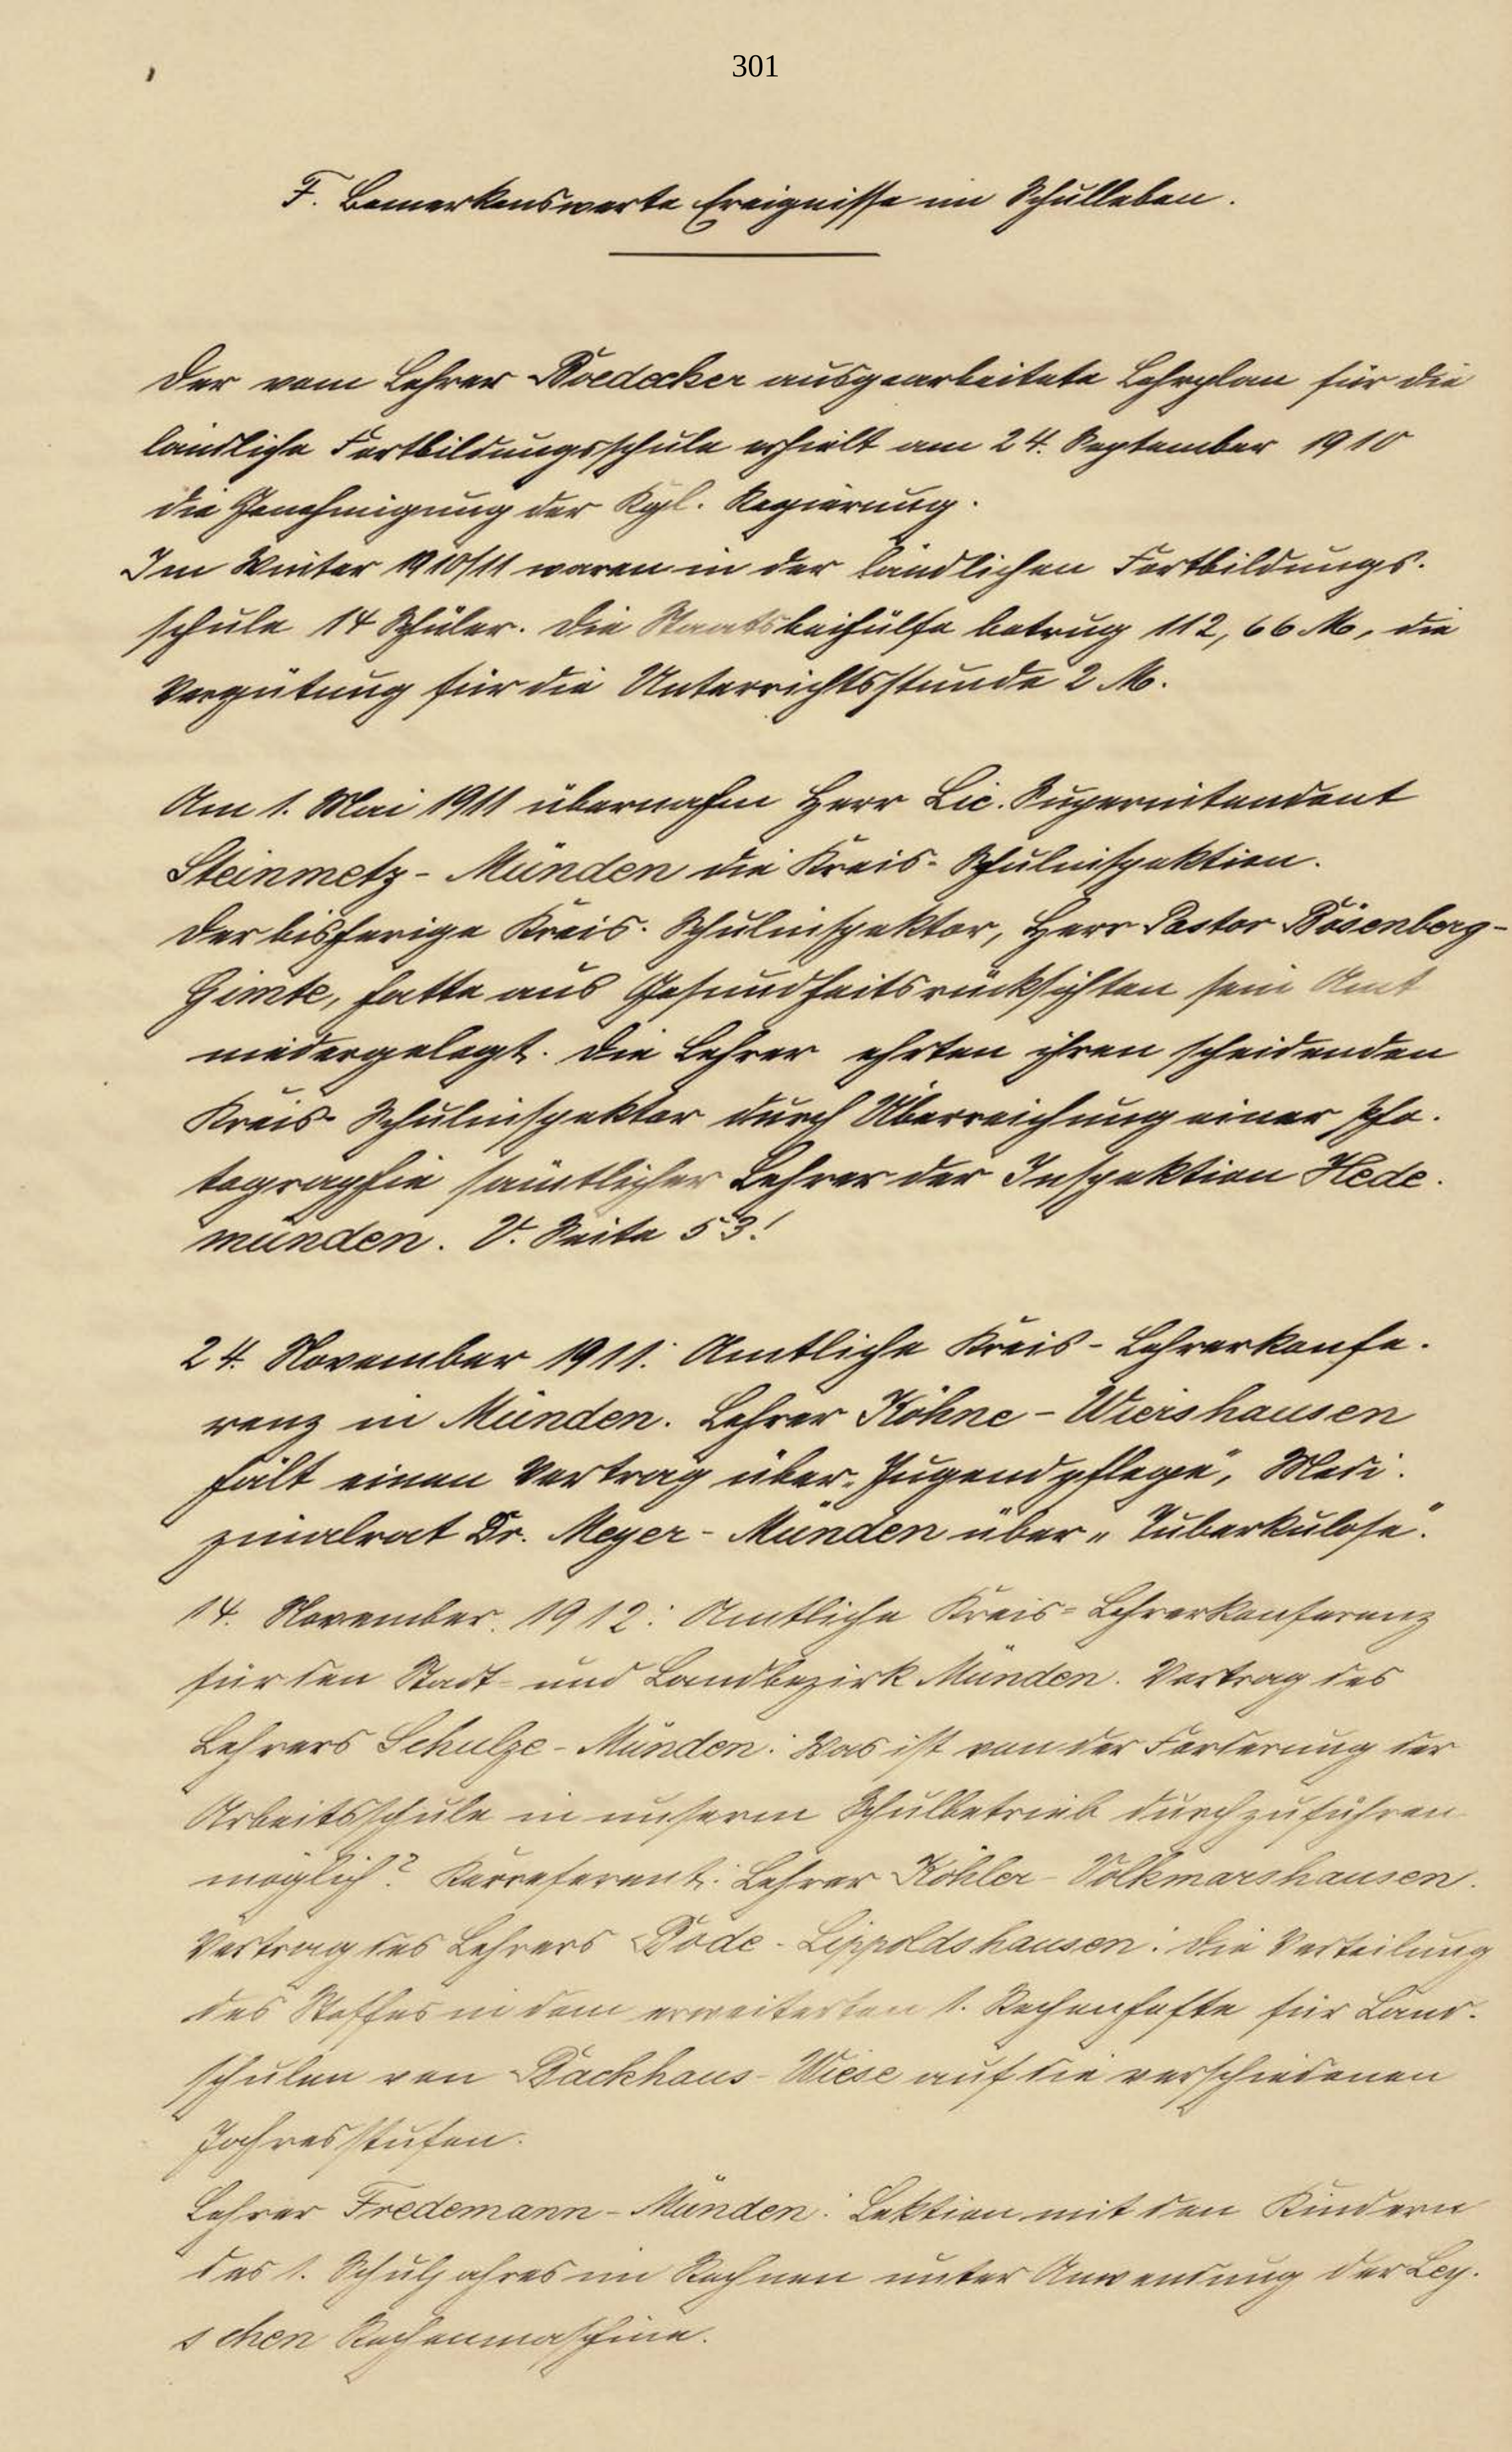 301
F. Bemerkenswerte Ereignisse im Schulleben.
Der vom Lehrer Boedecker ausgearbeitete Lehrplan für die
ländliche Fortbildungsschule erhielt am 24. September 1910
die Genehmigung der Kgl. Regierung.
Im Winter 1910/11 waren in der ländlichen Fortbildungs-
schule 14 Schüler. Die Staatsbeihülfe betrug 112,66 M, die
Vergütung für die Unterrichtsstunde 2 M.
Am 1. Mai 1911 übernahm Herr Lic. Superintendent
Steinmetz-Münden die Kreis-Schulinspektion.
Der bisherige Kreis-Schulinspektor, Herr Pastor Bösenberg-
Gimte, hatte aus Gesundheitsrücksichten sein Amt
niedergelegt. Die Lehrer ehrten ihren scheidenden
Kreis-Schulinspektor durch Überreichung einer Pho-
tographie sämtlicher Lehrer der Inspektion Hede-
münden. V. Seite 53!
24. November 1911: Amtliche Kreis-Lehrerkonfe-
renz in Münden. Lehrer Köhne-Wiershausen
hält einen Vortrag über „Jugendpflege", Medi-
zinalrat Dr. Meyer-Münden über „Tuberkulose".
14. November 1912: Amtliche Kreis-Lehrerkonferenz
für den Stadt- und Landbezirk Münden. Vortrag des
Lehrers Schulze-Münden: Was ist von der Forderung der
Arbeitsschule in unserm Schulbetrieb durchzuführen
möglich? Korreferent: Lehrer Köhler-Volkmarshausen.
Vortrag des Lehrers Bode-Lippoldshausen: Die Verteilung
des Stoffes in dem erweiterten 1. Rechenhefte für Land-
schulen von Backhaus-Wiese auf die verschiedenen
Jahresstufen.
Lehrer Fredemann-Münden: Lektion mit den Kindern
des 1. Schuljahres im Rechnen unter Anwendung der Ley-
schen Rechenmaschine.